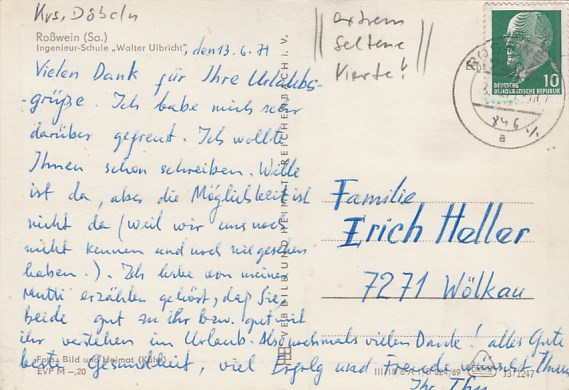 Krs. Döbeln
Roßwein (Sa.)
Ingenieur-Schule „Walter Ulbricht", den 13.6.71
Vielen Dank für Ihre Urlaubs-
grüße. Ich habe mich sehr
darüber gefreut. Ich wollte
Ihnen schon schreiben. Wille
ist da, aber die Möglichkeit ist
nicht da (weil wir uns noch
nicht kennen und noch nie gesehen
haben.). Ich habe von meiner
Mutti erzählen gehört, daß Sie
beide gut zu ihr bzw. gut mit
ihr verstehen im Urlaub. Also nochmals vielen Danke! alles Gute
beste Gesundheit, viel Erfolg und Freude wünscht Ihnen
Ihr
Foto: Bild und Heimat
EVP M –,20
VEB BILD UND HEIMAT REICHENBACH I. V.
extrem
seltene
Karte!
DEUTSCHE
DEMOKRATISCHE REPUBLIK
10
846
a
Familie
Erich Heller
7271 Wölkau